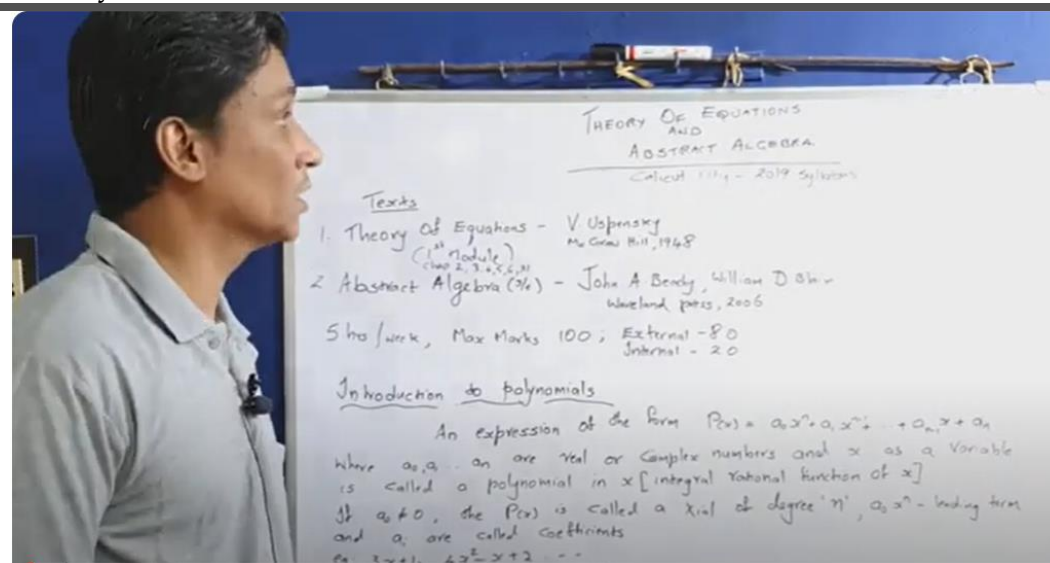 THEORY OF EQUATIONS
AND
ABSTRACT ALGEBRA
Calicut - 2019 Syllabus
Texts
1. Theory Of Equations - V Uspensky
Mc Graw Hill, 1948
(1st Module)
Chap 2, 3, 4, 5, 6,
2 Abstract Algebra (3/e) - John A. Beachy, William D Blair
Waveland press, 2006
5 hrs/week, Max Marks 100; External - 80
Internal - 20
Introduction to polynomials
An expression of the form P(x) = a₀xⁿ + a₁xⁿ⁻¹ + ... + aₙ₋₁x + aₙ
where a₀, a₁ ... aₙ are real or complex numbers and x as a variable
is called a polynomial in x [integral rational function of x]
If a₀ ≠ 0, the P(x) is called a of degree 'n', a₀xⁿ - leading term
and aᵢ are called coefficients
eg: 3x+1, 4x²-x+2 ---